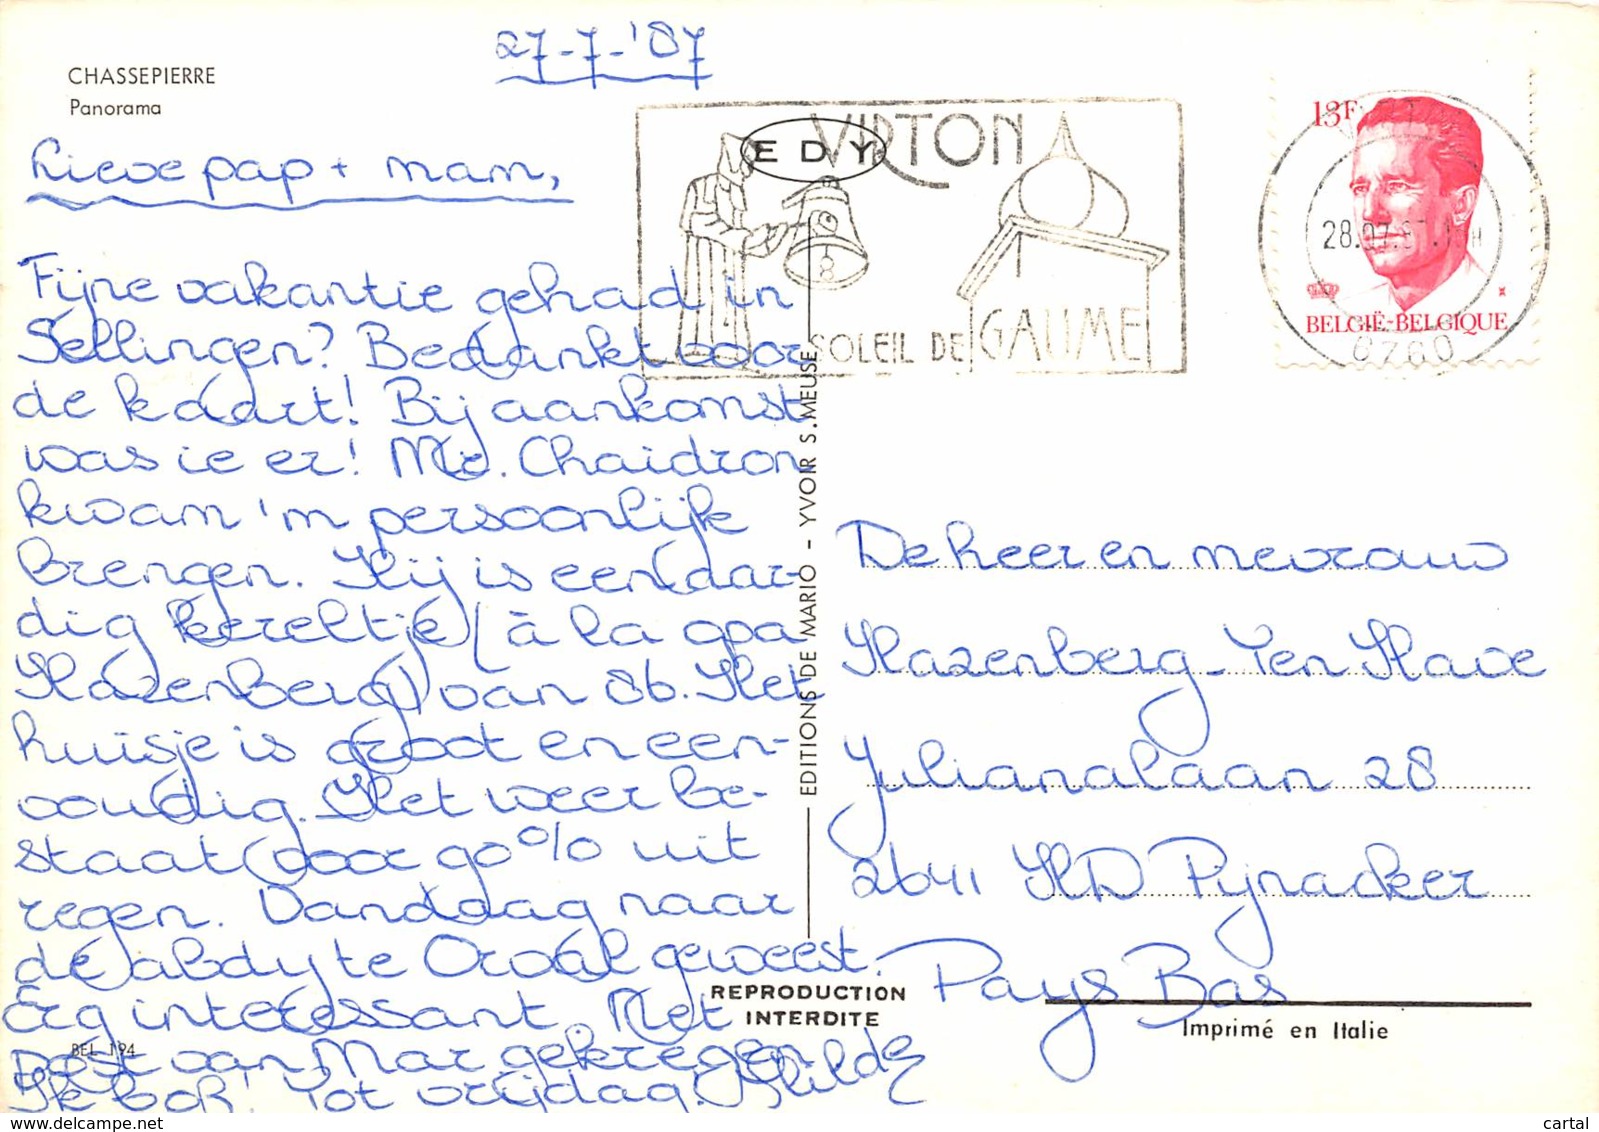 CHASSEPIERRE
Panorama
27-7-'87
Lieve pap + mam,
Fijne vakantie gehad in
Sellingen? Bedankt voor
de kaart! Bij aankomst
was ie er! Mr. Chaidron
kwam 'm persoonlijk
brengen. Hij is een aar-
dig kereltje (à la opa
Hazenberg) van 86. Het
huisje is groot en een-
voudig. Het weer be-
staat voor 90% uit
regen. Vandaag naar
de abdy te Orval geweest.
Erg interessant. Net
post van Mar gekregen.
Ik bof! Tot vrijdag! Hilde
BEL 194
EDY
VIRTON
8
SOLEIL DE GAUME
13F
28.07.87
BELGIË-BELGIQUE
6760
EDITIONS DE MARIO - YVOIR S. MEUSE
De heer en mevrouw
Hazenberg-Ten Have
Julianalaan 28
2641 HD Pijnacker
Pays Bas
REPRODUCTION
INTERDITE
Imprimé en Italie
www.delcampe.net
cartal